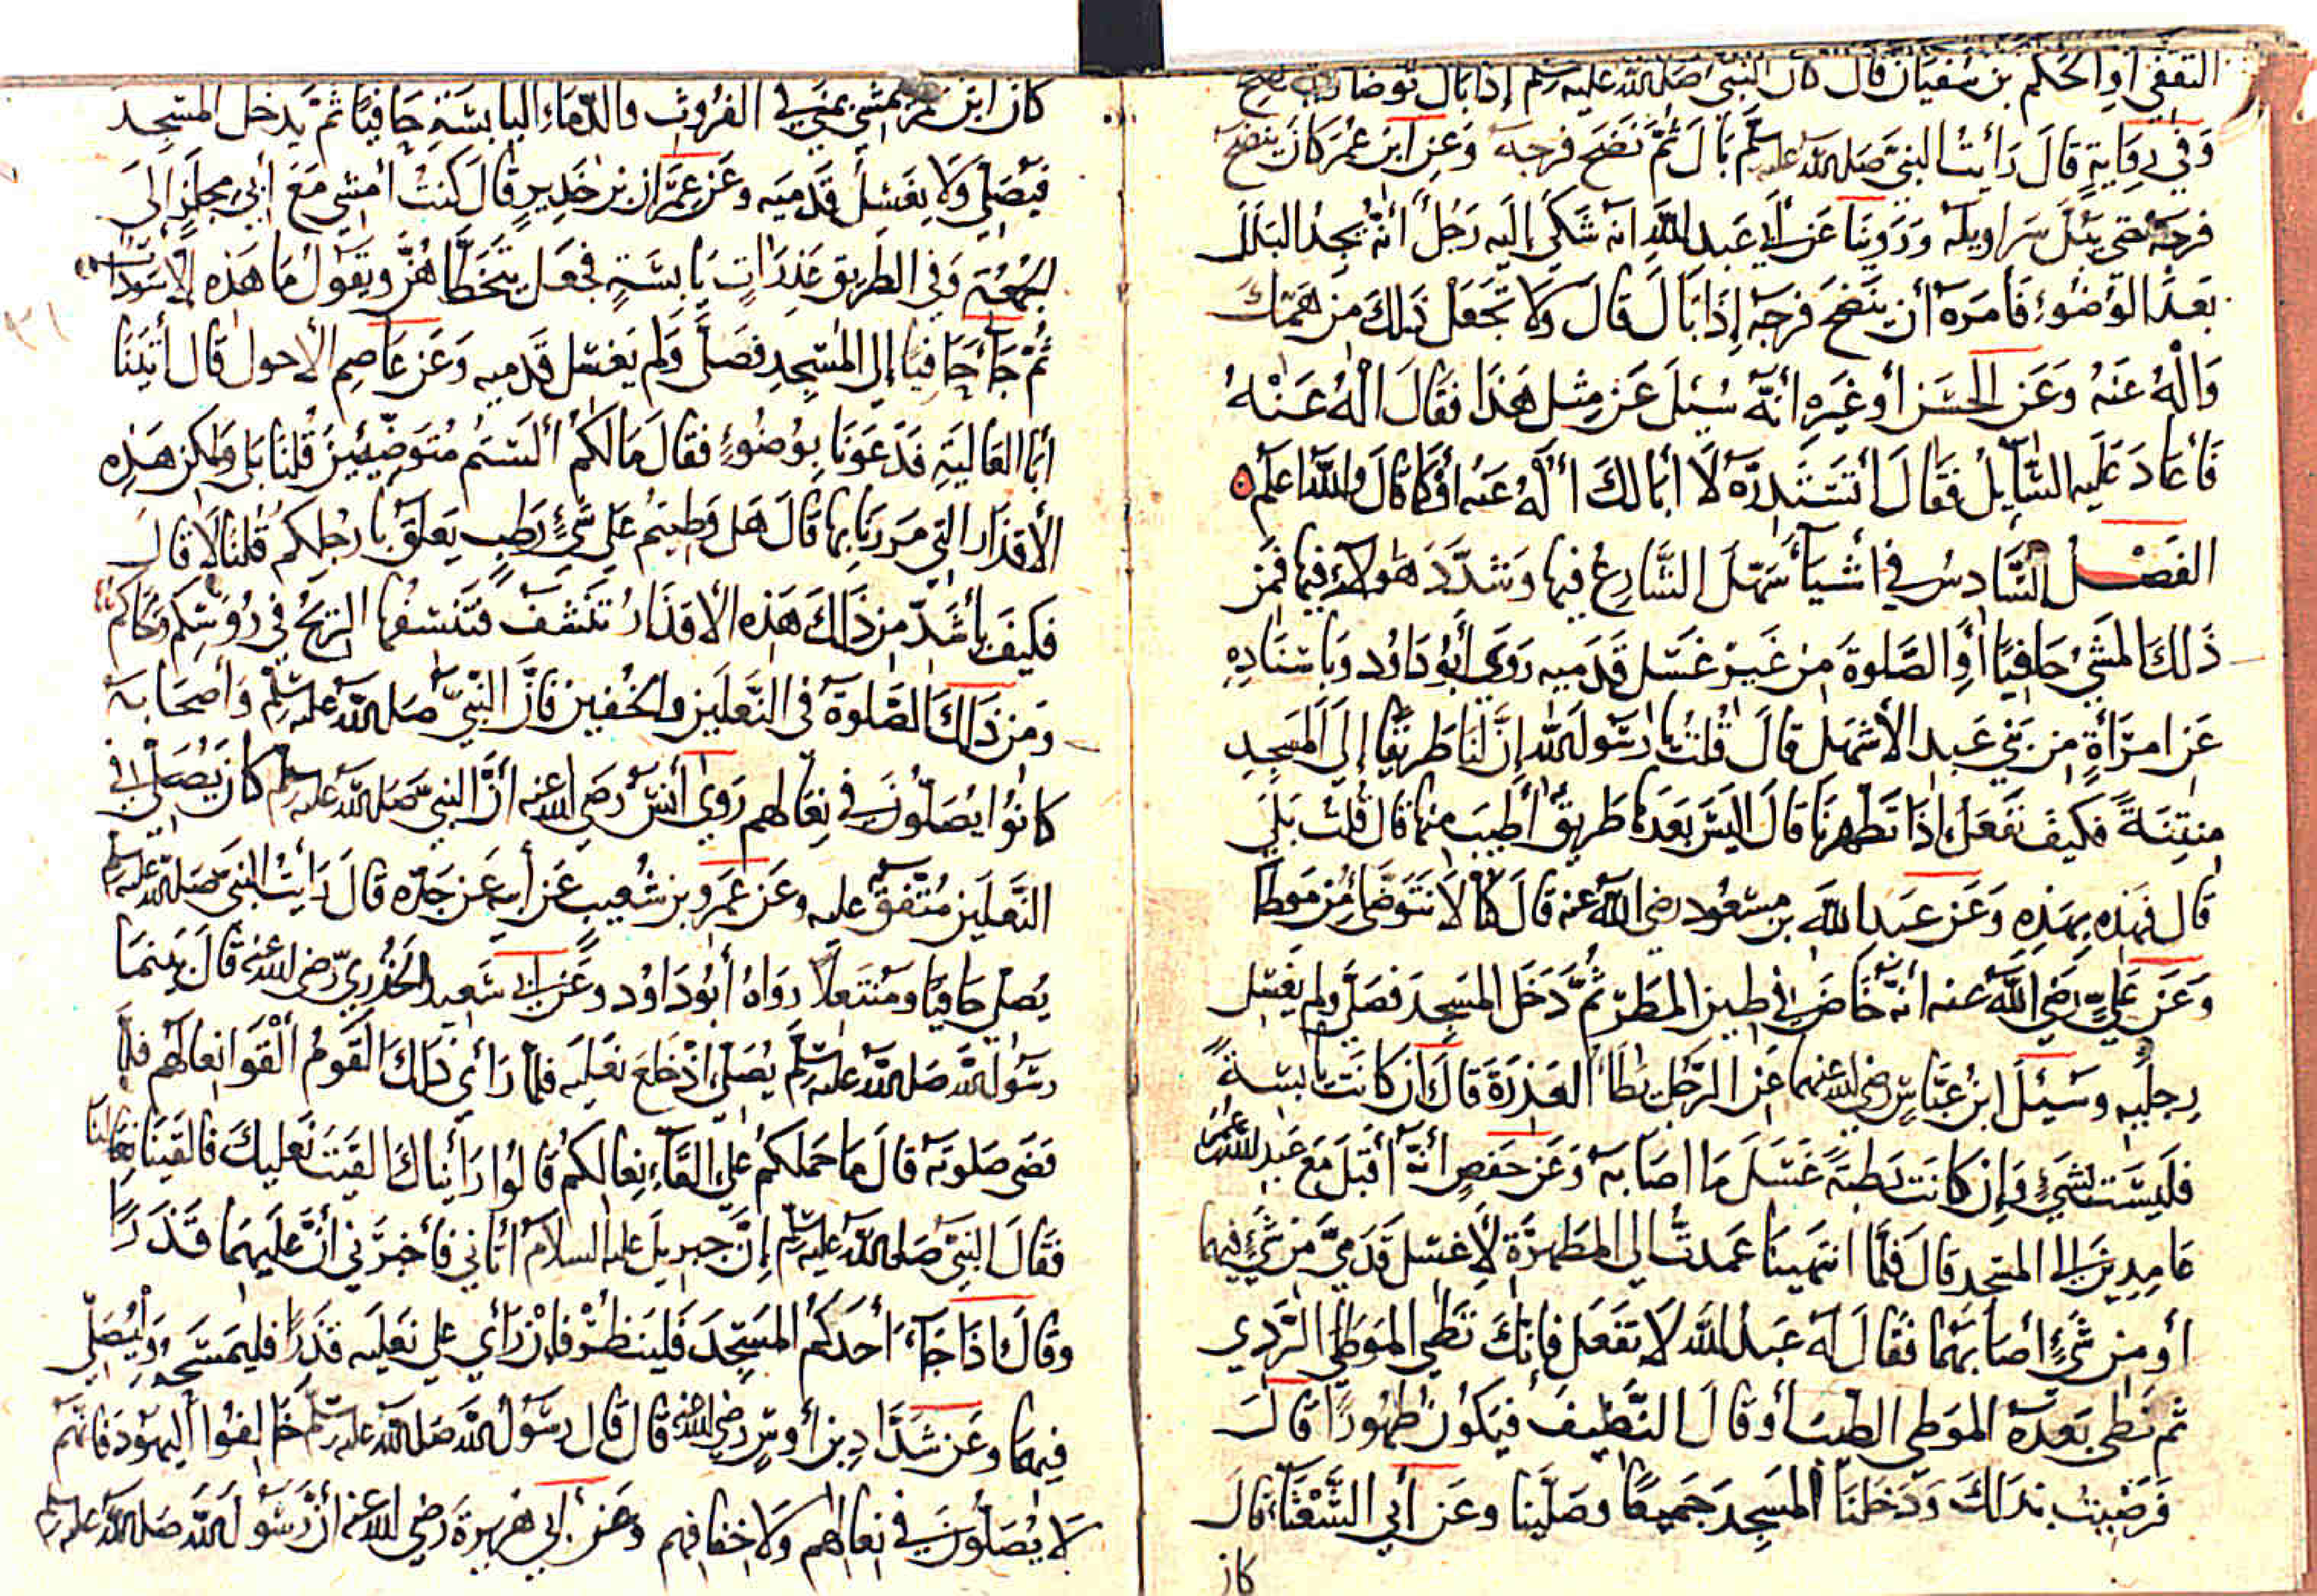 الثقفي أو الحكم بن سفيان قال كان النبي صلى الله عليه وسلم إذا بال توضأ
وَفي رِوَايةٍ قَالَ رَأيتُ النبيَّ صَلى الله عليه وسلم بَالَ ثُمَّ نَضَحَ فرجه وَعَنِ ابن عُمَر كانَ ينضح
فرجَه حتى يبُلَّ سَراويله وَرَوينَا عَن أبي عَبدِ اللهِ انه شَكى إليه رَجُلٌ أنّه يجدُ البَلَلَ
بَعدَ الوَضُوءِ فَأمَرَه أن ينضحَ فرجَه إذَا بَالَ قالَ وَلا تَجعَل ذلكَ من همّتكَ
وَالْهُ عَنهُ وَعَن الحَسَنِ أو غيره أنّه سُئِلَ عَن مِثلِ هَذَا فقَالَ الْهُ عَنْهُ
فَأعَادَ عَليه السَّايلُ فَقَالَ أتَستَدِرّهُ لَا أبَا لكَ اُلْهُ عَنه أوكمَا قَالَ والله اعلم
الفَصْلُ السَّادسُ في أشْيَآءَ سَهَّلَ الشَّارعُ فيها وَشدَّدَ هَولاءِ فيها فمن
ذَلكَ المشَيُ حَافيًا أوِ الصَّلوةَ من غَيرِ غَسلِ قدَميه رَوَى أبُو دَاوُد وَباسنَادِهِ
عَن امرَأةٍ من بَني عَبدِ الأشهَلِ قالَ قُلتُ يا رَسولَ الله إنَّ لنَا طَريقًا إلى المَسجِدِ
منتِنَةً فكيفَ نَفعَلُ إذَا تطَهرنَا قالَ اليسَ بَعدَهَا طَريقٌ أطيَب منها قال قلتُ بَلَى
قال فهَذِه بِهَذِهِ وَعَن عَبدِ الله بن مسعُود رضي الله عنه قالَ كنّا لَا نتَوَضّأ من مَوطأ
وَعَن عَليٍّ رَضي الله عنه أنّه خَاضَ في طينِ المطَرِ ثمَّ دَخَلَ المسَجِدَ فصَلَّى ولم يغسِل
رِجلَيه وسُئِلَ ابنُ عَبَّاسٍ رضي الله عنهما عَنِ الرَّجُلِ يَطَأُ العَذرَةَ قَالَ ان كانَتْ يَابسَةً
فليسَت بشَيءٍ وَإن كانَت رَطبةً غَسَلَ مَا اصَابه وَعَن حَفصٍ أنّه أقبَلَ مَعَ عَبدِ الله بن عمر
عَامِدِينَ إلى المسجد قالَ فَلَمَّا انتهَينَا عَمدتُ إلى المطَهرَةِ لأغسلَ قدَميَّ من شَيءٍ فيهما
أو من شَيءٍ أصَابَهُما فقَالَ له عَبدُ الله لَا تفعَل فإنكَ تَطَى الموَطى الرَّدي
ثم تطى بَعدَه الموَطى الطيبَ أو قالَ النَّظيفَ فيَكوُن طَهُورًا قَالَ
فَرَضيتُ بذلكَ وَدَخلنَا المسَجدَ جَميعًا وصَلّينَا وعَن أبي الشَّعْثآءِ قالَ
كان
كانَ ابن عمر يمشي بمنى في الفروث والدّمَاءِ اليابسَةِ حَافيًا ثمّ يَدخلُ المسَجِدَ
فيصَلي وَلا يغسلُ قدَميه وعَن عِمرَان بن حَديرٍ قَالَ كنتُ أمشي مَعَ أبي مجلزٍ إلى
الجمُعَةِ وَفي الطريقِ عَذرَاتٍ يَابسَةٍ فجعَل يتَخَطَّاهُنَّ ويَقولُ مَا هَذِه إلا سَودات
ثُمَّ جَآءَ حَافيًا إلى المسَجِدِ فصَلَّى وَلم يَغسل قدَميه وَعَن عَاصِم الأحول قال أتينَا
أبَا العَاليَةِ فدَعَونَا بوُضُوءٍ فقالَ مَا لكمُ ألَستُم مُتَوضّيِئينَ قُلنَا بَلى وَلكن هَذِه
الأقذَار التي مَررنَا بها قَالَ هَل وَطيتُم عَلى شَيءٍ رَطبٍ يَعلَق بارجُلكم قلنَا لا قال
فكيفَ بأشَدَّ من ذَلكَ هَذه الأقذَارُ تنَشَف فتَنسفُها الريحُ في رُؤسكم وَلحاكم
وَمن ذَلكَ الصَّلوةُ في النّعلَينِ والخُفين فانَّ النَّبيَّ صَلى الله عليه وسلم وَأصحَابه
كانوُا يُصَلّونَ في نِعَالهم رَوى أنسٌ رَضي الله عنه أنَّ النبيَّ صَلى الله عليه وسلم كان يُصَلي في
النَّعلَين مُتّفقٌ عليه وعَن عَمرو بن شُعيبٍ عَن أبيه عَن جَدّه قالَ رَأيتُ النبيَّ صَلى الله عليه وسلم
يُصلي حَافيًا ومنتَعلًا رَواهُ أبُو دَاوُد وعَن أبي سَعيدٍ الخُدريّ رضي الله عنه قالَ بينمَا
رسُولُ الله صَلى الله عليه وسلم يُصَلّي إذْ خَلعَ نَعلَيه فلمَّا رَأى ذَلكَ القَومُ ألْقَوا نعَالهُم فلمّا
قَضى صَلوتَه قالَ مَا حمَلكم عَلى القَآءِ نِعَالكم قَالوا رَأينَاكَ القيتَ نَعليكَ فالقينَا نعالنا
فقَالَ النبيّ صَلى الله عليه وسلم إنَّ جبريلَ عليه السلام أتاني فأخبرَني أنَّ عَليهمَا قَذَرًا
وقَالَ إذَا جَآءَ أحَدكُم المسَجِدَ فَليَنظُرْ فإنْ رَأى على نَعليه قَذرًا فليمَسَحْهُ وَليُصَلّي
فيهمَا وعَن شَدَّادِ بن أوسٍ رضي الله عنه قَالَ قَالَ رسُولُ الله صَلى الله عليه وسلم خَالِفوُا اليهُودَ فانّهم
لَا يُصَلّونَ في نعالهم ولَا خفافهم وَعَن أبي هريرةَ رضي الله عنه أنَّ رَسُولَ الله صَلى الله عليه وسلم